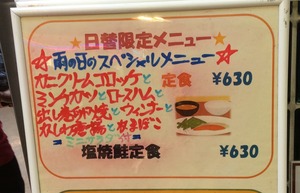 ★日替限定メニュー★
雨の日のスペシャルメニュー
カニクリームコロッケと
ミンチカツとロースハムと
出し巻玉子焼とウィンナーと
かまぼこ
ミニサラダ付
定食 ¥630
塩焼鮭定食 ¥630